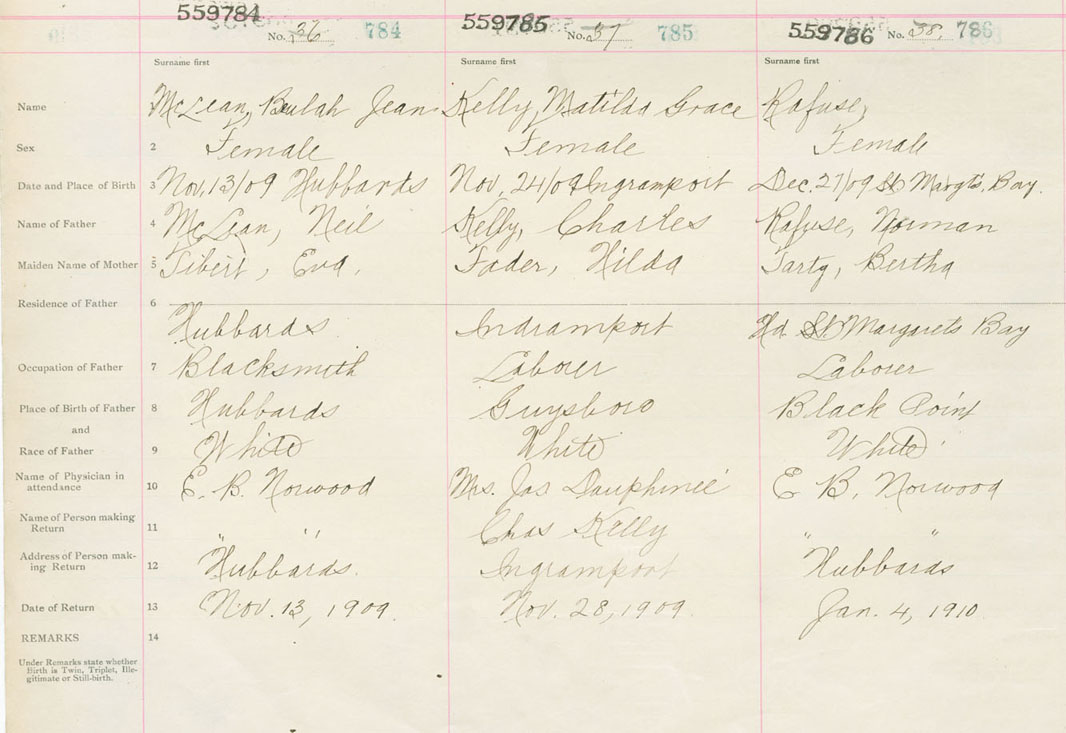 559784 No. 36 784 559785 No. 37 785 559786 No. 38 786
Surname first Surname first Surname first
Name McLean, Beulah Jean Kelly, Matilda Grace Rafuse,
Sex 2 Female Female Female
Date and Place of Birth 3 Nov. 13/09 Hubbards Nov. 24/09 Ingramport Dec. 27/09 St Margts. Bay.
Name of Father 4 McLean, Neil Kelly, Charles Rafuse, Norman
Maiden Name of Mother 5 Tibert, Eva. Fader, Hilda Tarty, Bertha
Residence of Father 6
Hubbards Indramport Hd St. Margarets Bay
Occupation of Father 7 Blacksmith Laborer Laborer
Place of Birth of Father 8 Hubbards Guysboro Black Point
and
Race of Father 9 White White White
Name of Physician in
attendance 10 E. B. Norwood Mrs. Jas Dauphinee E B. Norwood
Name of Person making
Return 11 " " Chas Kelly " "
Address of Person mak-
ing Return 12 Hubbards. Ingramport Hubbards
Date of Return 13 Nov. 13, 1909. Nov. 28, 1909. Jan. 4, 1910.
REMARKS 14
Under Remarks state whether
Birth is Twin, Triplet, Ille-
gitimate or Still-birth.